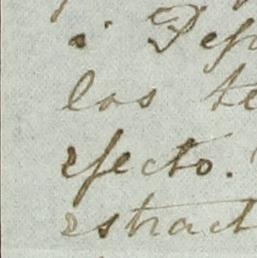 a Dep
los te
efecto.
estract